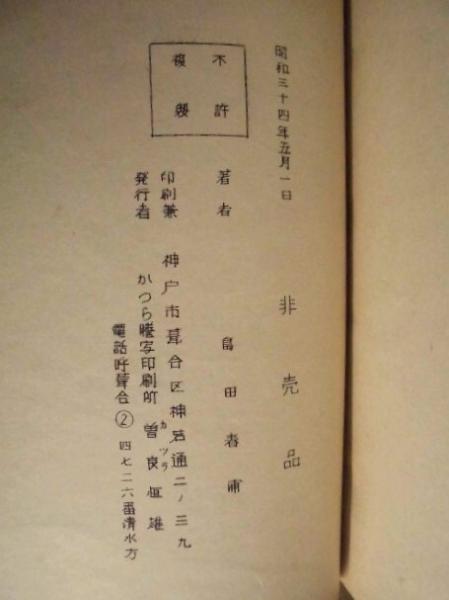 昭和三十四年五月一日
非売品
不許
複製
著者 島田春甫
印刷兼
発行者
神戸市葺合区神若通二ノ三九
かつら謄写印刷所 曽良恒雄
カツラ
電話呼葺合② 四七二六番清水方